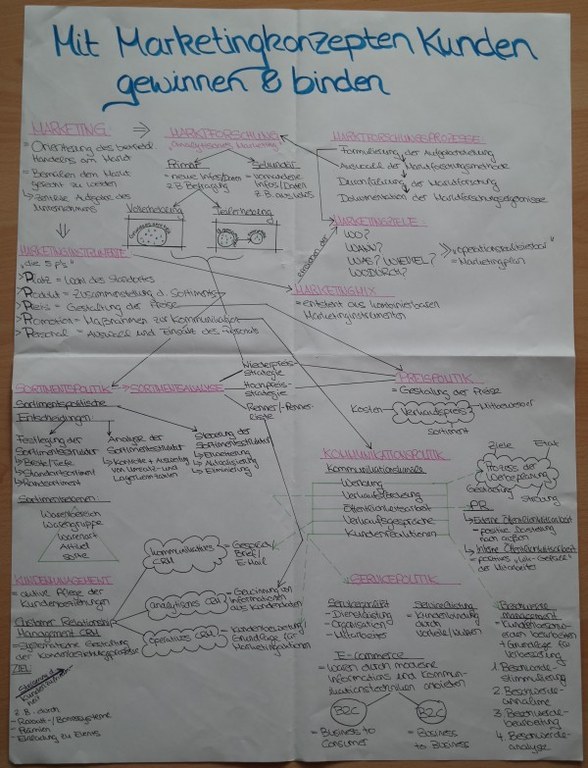 Mit Marketingkonzepten Kunden
gewinnen & binden
MARKETING
MARKTFORSCHUNG
= Orientierung des betriebl.
Handelns am Markt
= Bemühen dem Markt
gerecht zu werden
Primär
= neue Infos/Daten
z.B. Befragung
Sekundär
= vorhandene
Infos/Daten
Vollerhebung
Teilerhebung
MARKTFORSCHUNGSPROZESSE:
Formulierung der Aufgabenstellung
Auswahl der Marktforschungsmethode
Durchführung der Marktforschung
Dokumentation der Marktforschungsergebnisse
MARKETINGZIELE:
WO?
WANN?
WAS? WIEVIEL?
WODURCH?
= Marketingplan
MARKETINGMIX
= entsteht aus kombinierbaren
Marketinginstrumenten
MARKETINGINSTRUMENTE
"die 5 P's"
Platz = Wahl des Standortes
Produkt = Zusammenstellung d. Sortiments
Preis = Gestaltung der Preise
Promotion = Maßnahmen zur Kommunikation
Personal = Auswahl und Einsatz des Personals
SORTIMENTSPOLITIK
SORTIMENTSANALYSE
Niedrigpreis-
strategie
Hochpreis-
strategie
Renner-/Penner-
Liste
PREISPOLITIK
= Gestaltung der Preise
Kosten
Verkaufspreis
Mitbewerber
Sortiment
Sortimentspolitische
Entscheidungen
Festlegung der
Sortimentsstruktur
Breite/Tiefe
Standardsortiment
Randsortiment
Analyse der
Sortimentsstruktur
Kontrolle + Auswertung
von Umsatz- und
Lagerkennzahlen
Steuerung der
Sortimentsstruktur
Erweiterung
Aktualisierung
Eliminierung
Warenbereich
Warengruppe
Warenart
Artikel
Sorte
KOMMUNIKATIONSPOLITIK
Werbung
Verkaufsförderung
Öffentlichkeitsarbeit
Verkaufsgespräche
Kundenreklamationen
Ziele
Etat
Prozess der
Werbeplanung
Gestaltung
Streuung
PR
Externe Öffentlichkeitsarbeit
= positive Darstellung
nach außen
Interne Öffentlichkeitsarbeit
= positives "Wir-Gefühl"
der Mitarbeiter
KUNDENMANAGEMENT
= aktive Pflege der
Kundenbeziehungen
Customer Relationship
Management CRM
= systematische Gestaltung
ZIEL:
z.B. durch
- Rabatt-/Bonussysteme
- Prämien
- Einladung zu Events
kommunikatives
CRM
Gespräch/
Brief/
E-Mail
analytisches CRM
Gewinnung an
Informationen
aus Kundendaten
operatives CRM
Grundlage für
Marketingaktionen
SERVICEPOLITIK
- Dienstleistung
- Organisation
- Mitarbeiter
Servicewirkung
= Kundenbindung
durch
Vorteile/Nutzen
E-commerce
= Waren durch moderne
Informations und Kommuni-
kationstechniken anbieten
B2C
= Business to
Consumer
B2C
= Business
to Business
Beschwerde
Management
+ Grundlage für
Verbesserung
1. Beschwerde-
stimulierung
2. Beschwerde-
annahme
3. Beschwerde-
bearbeitung
4. Beschwerde-
analyse